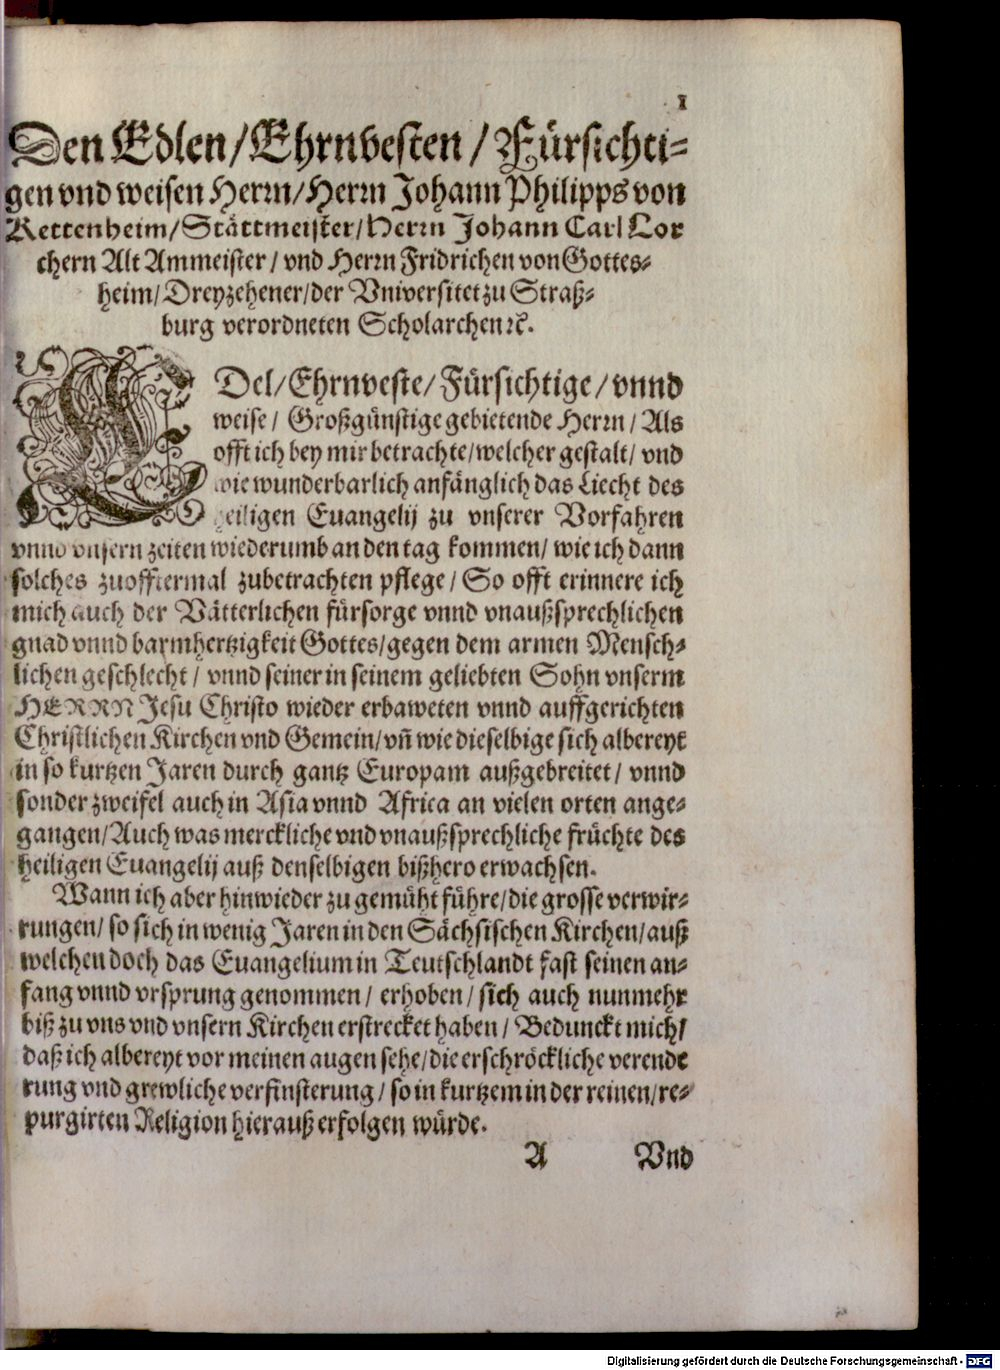 1
Den Edlen/Ehrnvesten/Fürsichti-
gen vnd weisen Herrn/Herrn Johann Philipps von
Kettenheim/Stättmeister/Herrn Johann Carl Lor
chern Alt Ammeister/vnd Herrn Fridrichen von Gottes-
heim/Dreyzehener/der Vniversitet zu Straß-
burg verordneten Scholarchen ꝛc.
EDel/Ehrnveste/Fürsichtige/vnnd
weise/Großgünstige gebietende Herrn/Als
offt ich bey mir betrachte/welcher gestalt/vnd
wie wunderbarlich anfänglich das Liecht des
heiligen Euangelij zu vnserer Vorfahren
vnnd vnsern zeiten wiederumb an den tag kommen/wie ich dann
solches zuofftermal zubetrachten pflege/So offt erinnere ich
mich auch der Vätterlichen fürsorge vnnd vnaußsprechlichen
gnad vnnd barmhertzigkeit Gottes/gegen dem armen Mensch-
lichen geschlecht/vnnd seiner in seinem geliebten Sohn vnserm
HERRN Jesu Christo wieder erbaweten vnnd auffgerichten
Christlichen Kirchen vnd Gemein/vñ wie dieselbige sich albereyt
in so kurtzen Jaren durch gantz Europam außgebreitet/vnnd
sonder zweifel auch in Asia vnnd Africa an vielen orten ange-
gangen/Auch was merckliche vnd vnaußsprechliche früchte des
heiligen Euangelij auß denselbigen bißhero erwachsen.
Wann ich aber hinwieder zu gemüht führe/die grosse verwir-
rungen/so sich in wenig Jaren in den Sächsischen Kirchen/auß
welchen doch das Euangelium in Teutschlandt fast seinen an-
fang vnnd vrsprung genommen/erhoben/sich auch nunmehr
biß zu vns vnd vnsern Kirchen erstrecket haben/Bedunckt mich/
daß ich albereyt vor meinen augen sehe/die erschröckliche verende
rung vnd grewliche verfinsterung/so in kurtzem in der reinen/re-
purgirten Religion hierauß erfolgen würde.
A Vnd
Digitalisierung gefördert durch die Deutsche Forschungsgemeinschaft - DFG